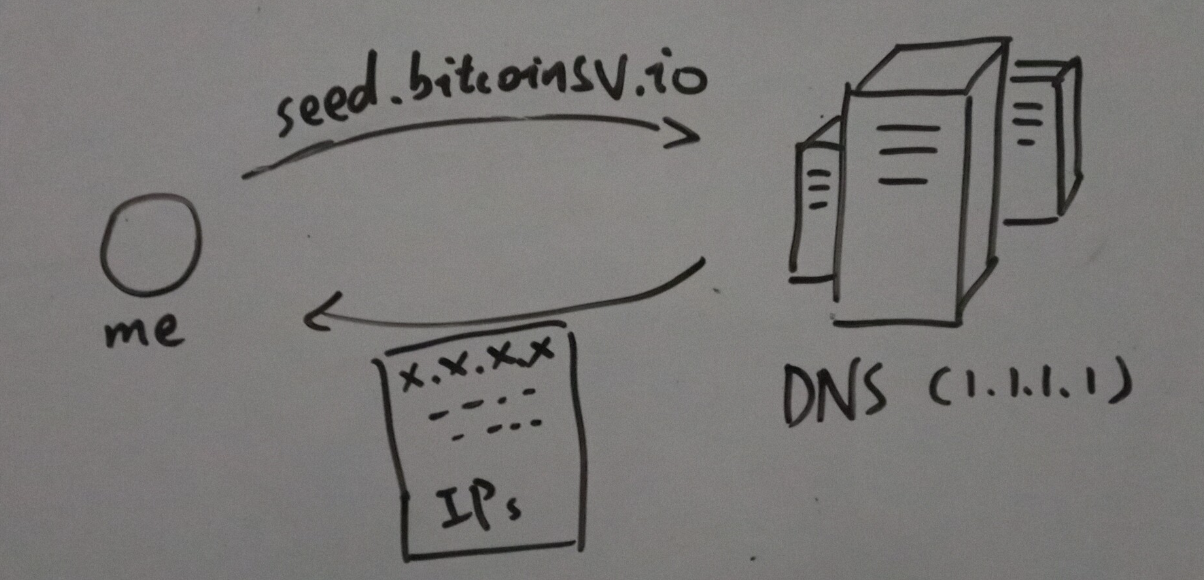 seed.bitcoinsv.io
me
x.x.x.x
IPs
DNS (1.1.1.1)